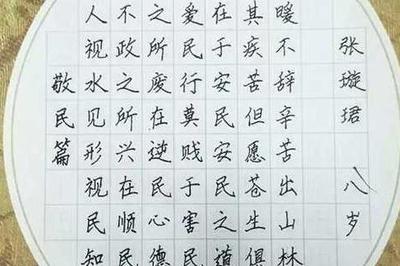 敬民篇
人视水见形视民知
不政之所兴在顺民
之所废在逆民心德
爱民行莫贱于害民
在于安民安民之道
其疾苦但愿苍生俱
暖不辞辛苦出山林
张璇珺 八岁